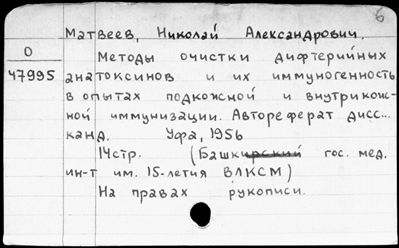 6
Матвеев, Николай Александрович.
О
47995
Методы очистки дифтерийных
анатоксинов и их иммуногенность
в опытах подкожной и внутрикож-
ной иммунизации. Автореферат дисс...
канд. Уфа, 1956
14стр. (Башкирский гос. мед.
ин-т им. 15-летия ВЛКСМ)
На правах рукописи.